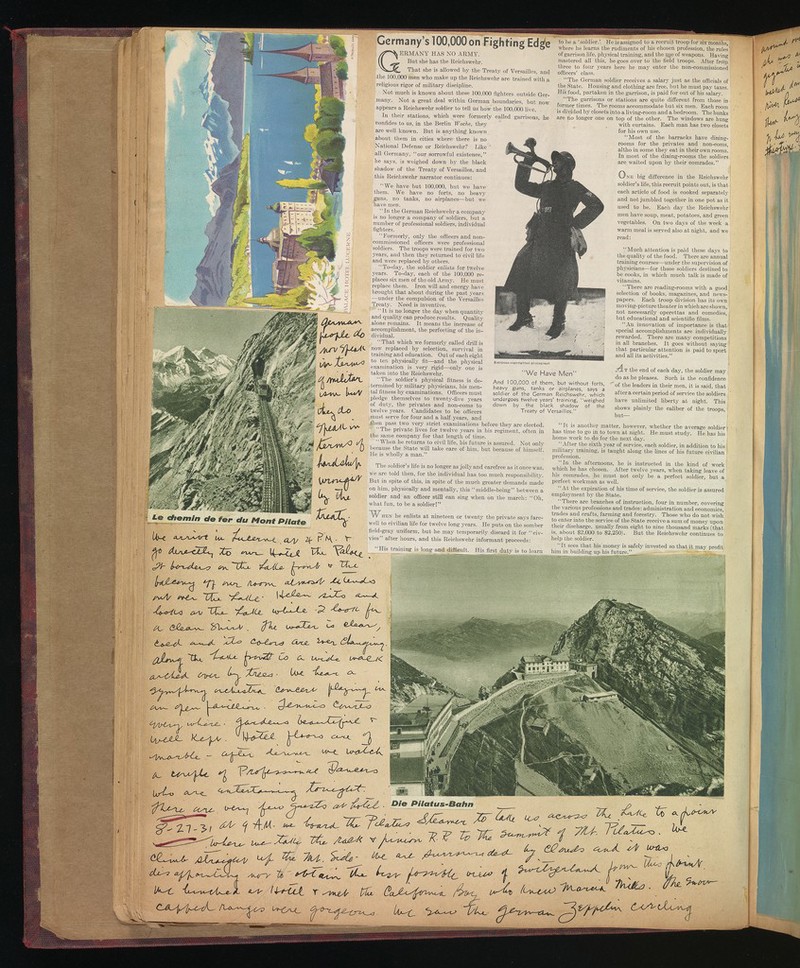 PALACE HOTEL, LUCERNE.
Germany's 100,000 on Fighting Edge
GERMANY HAS NO ARMY.
But she has the Reichswehr.
That she is allowed by the Treaty of Versailles, and
the 100,000 men who make up the Reichswehr are trained with a
religious rigor of military discipline.
Not much is known about these 100,000 fighters outside Ger-
many. Not a great deal within German boundaries, but now
appears a Reichswehr soldier to tell us how the 100,000 live.
In their stations, which were formerly called garrisons, he
confides to us, in the Berlin Woche, they
are well known. But is anything known
about them in cities where there is no
National Defense or Reichswehr? Like
all Germany, "our sorrowful existence,"
he says, is weighed down by the black
shadow of the Treaty of Versailles, and
this Reichswehr narrator continues:
"We have but 100,000, but we have
them. We have no forts, no heavy
guns, no tanks, no airplanes—but we
have men.
"In the German Reichswehr a company
is no longer a company of soldiers, but a
number of professional soldiers, individual
fighters.
"Formerly, only the officers and non-
commissioned officers were professional
soldiers. The troops were trained for two
years, and then they returned to civil life
and were replaced by others.
"To-day, the soldier enlists for twelve
years. To-day, each of the 100,000 re-
places six men of the old Army. He must
replace them. Iron will and energy have
brought that about during the past years
—under the compulsion of the Versailles
Treaty. Need is inventive.
"It is no longer the day when quantity
and quality can produce results. Quality
alone remains. It means the increase of
accomplishment, the perfecting of the in-
dividual.
"That which we formerly called drill is
now replaced by selection, survival in
training and education. Out of each eight
to ten physically fit—and the physical
examination is very rigid—only one is
taken into the Reichswehr.
"The soldier's physical fitness is de-
termined by military physicians, his men-
tal fitness by examinations. Officers must
pledge themselves to twenty-five years
of duty, the privates and non-coms to
twelve years. Candidates to be officers
must serve for four and a half years, and
then pass two very strict examinations before they are elected.
"The private lives for twelve years in his regiment, often in
the same company for that length of time.
"When he returns to civil life, his future is assured. Not only
because the State will take care of him, but because of himself.
He is wholly a man."
The soldier's life is no longer as jolly and carefree as it once was,
we are told then, for the individual has too much responsibility.
But in spite of this, in spite of the much greater demands made
on him, physically and mentally, this "middle-being" between a
soldier and an officer still can sing when on the march: "Oh,
what fun, to be a soldier!"
WHEN he enlists at nineteen or twenty the private says fare-
well to civilian life for twelve long years. He puts on the somber
field-gray uniform, but he may temporarily discard it for "civ-
vies" after hours, and this Reichswehr informant proceeds:
"His training is long and difficult. His first duty is to learn
to be a 'soldier.' He is assigned to a recruit troop for six months,
where he learns the rudiments of his chosen profession, the rules
of garrison life, physical training, and the use of weapons. Having
mastered all this, he goes over to the field troops. After from
three to four years here he may enter the non-commissioned
officers' class.
"The German soldier receives a salary just as the officials of
the State. Housing and clothing are free, but he must pay taxes.
His food, partaken in the garrison, is paid for out of his salary.
"The garrisons or stations are quite different from those in
former times. The rooms accommodate but six men. Each room
is divided by closets into a living-room and a bedroom. The bunks
are no longer one on top of the other. The windows are hung
with curtains. Each man has two closets
for his own use.
"Most of the barracks have dining-
rooms for the privates and non-coms,
altho in some they eat in their own rooms.
In most of the dining-rooms the soldiers
are waited upon by their comrades."
ONE big difference in the Reichswehr
soldier's life, this recruit points out, is that
each article of food is cooked separately
and not jumbled together in one pot as it
used to be. Each day the Reichswehr
men have soup, meat, potatoes, and green
vegetables. On two days of the week a
warm meal is served also at night, and we
read:
"Much attention is paid these days to
the quality of the food. There are annual
training courses—under the supervision of
physicians—for those soldiers destined to
be cooks, in which much talk is made of
vitamins.
"There are reading-rooms with a good
selection of books, magazines, and news-
papers. Each troop division has its own
moving-picture theater in which are shown,
not necessarily operettas and comedies,
but educational and scientific films.
"An innovation of importance is that
special accomplishments are individually
rewarded. There are many competitions
in all branches. It goes without saying
that particular attention is paid to sport
and all its activities."
AT the end of each day, the soldier may
do as he pleases. Such is the confidence
of the leaders in their men, it is said, that
after a certain period of service the soldiers
have unlimited liberty at night. This
shows plainly the caliber of the troops,
but—
"It is another matter, however, whether the average soldier
has time to go in to town at night. He must study. He has his
home work to do for the next day.
"After the sixth year of service, each soldier, in addition to his
military training, is taught along the lines of his future civilian
profession.
"In the afternoons, he is instructed in the kind of work
which he has chosen. After twelve years, when taking leave of
his comrades, he must not only be a perfect soldier, but a
perfect workman as well.
"At the expiration of his time of service, the soldier is assured
employment by the State.
"There are branches of instruction, four in number, covering
the various professions and trades: administration and economics,
trades and crafts, farming and forestry. Those who do not wish
to enter into the service of the State receive a sum of money upon
their discharge, usually from eight to nine thousand marks (that
is, about $2,000 to $2,250). But the Reichswehr continues to
help the soldier.
"It sees that his money is safely invested so that it may profit
him in building up his future."
"We Have Men"
And 100,000 of them, but without forts,
heavy guns, tanks or airplanes, says a
soldier of the German Reichswehr, which
undergoes twelve years' training, "weighed
down by the black shadow of the
Treaty of Versailles."
German
people do
not speak
in terms
of militar
ism but
they do
speak in
terms of
hardship
wrought
by the
treaty.
Le chemin de fer du Mont Pilate
We arrive in Lucerne at 4 P.M. &
go directly to our Hotel the Palace
It borders on the Lake front & the
balcony off our room almost extends
out over the Lake. Helen sits and
looks at the Lake while I look for
a clean shirt. The water is clear,
cool and its colors are ever changing
along the Lake front is a wide walk
arched over by trees. We hear a
symphony orchestra concert playing in
an open pavillion. Tennis courts
every where. Gardens beautiful &
well kept. Hotel floors are of
marble - after dinner we watch
a couple of Professional Dancers
who are entertaining tonight.
There are very few guests at hotel.
Die Pilatus-Bahn
8-27-31 at 9 A.M. we board the Pilatus Steamer to take us across the Lake to a point
where we take the Rack & pinion R R to the summit of Mt. Pilatus. We
climb straight up the Mt. side. We are surrounded by clouds and it was
disappointing not to obtain the best possible view of Switzerland from this point
We lunched at Hotel & met the California Boy who knew Marcia Mills. The snow
capped ranges were gorgeous We saw the German Zeppelin circling
around
she was
gigantic